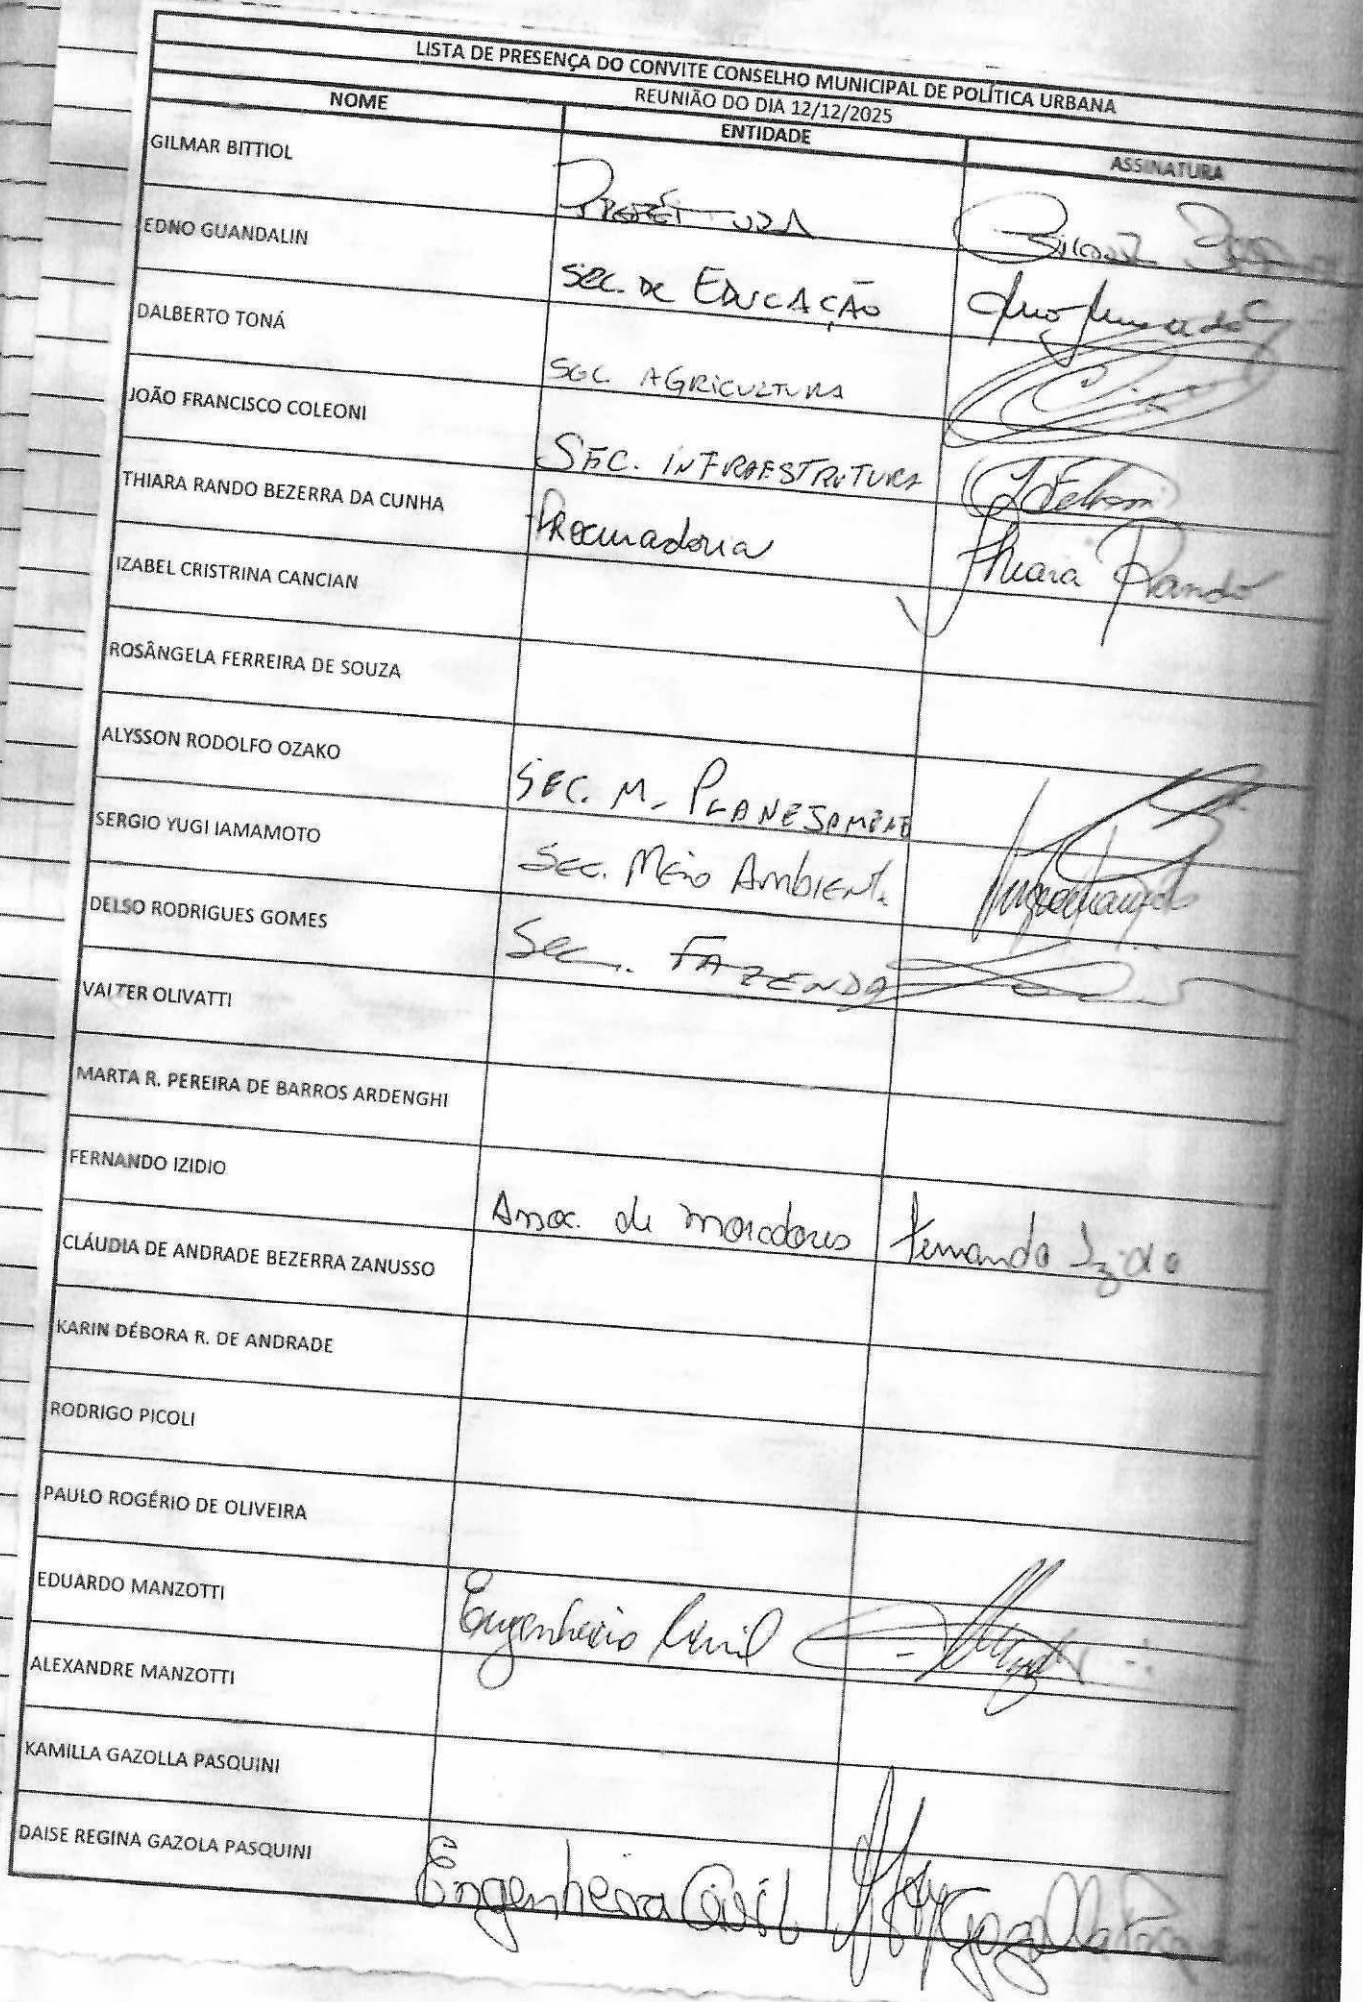 LISTA DE PRESENÇA DO CONVITE CONSELHO MUNICIPAL DE POLÍTICA URBANA
REUNIÃO DO DIA 12/12/2025
NOME ENTIDADE ASSINATURA
GILMAR BITTIOL
EDNO GUANDALIN SEC. DE EDUCAÇÃO
DALBERTO TONÁ SEC. AGRICULTURA
JOÃO FRANCISCO COLEONI SEC. INFRAESTRUTURA
THIARA RANDO BEZERRA DA CUNHA Procuradoria Thiara Rando
IZABEL CRISTRINA CANCIAN
ROSÂNGELA FERREIRA DE SOUZA
ALYSSON RODOLFO OZAKO SEC. M. PLANEJAMENTO
SERGIO YUGI IAMAMOTO SEC. MEIO AMBIENT.
DELSO RODRIGUES GOMES SEC. FAZENDA
VALTER OLIVATTI
MARTA R. PEREIRA DE BARROS ARDENGHI
FERNANDO IZIDIO Assoc. de moradores Fernando Izidio
CLÁUDIA DE ANDRADE BEZERRA ZANUSSO
KARIN DÉBORA R. DE ANDRADE
RODRIGO PICOLI
PAULO ROGÉRIO DE OLIVEIRA
EDUARDO MANZOTTI Engenheiro Civil
ALEXANDRE MANZOTTI
KAMILLA GAZOLLA PASQUINI
DAISE REGINA GAZOLA PASQUINI Engenheira Civil